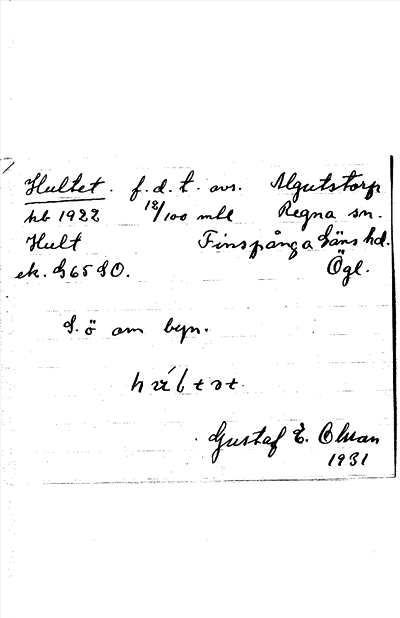 Hultet. f.d.t. avs. Algutstorp
hb 1922 12/100 mtl Regna sn.
Hult Finspånga läns hd.
ek. G 65 SO. Ögl.
S. ö om byn.
Gustaf E. Olsson
1931